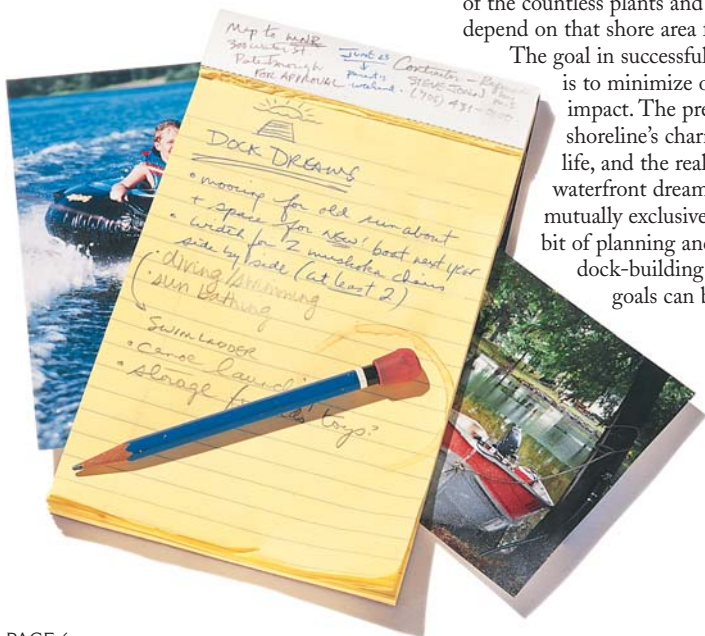 of the countless plants and
depend on that shore area
The goal in successful
is to minimize
impact. The pre
shoreline's char
life, and the real
waterfront dream
mutually exclusive
bit of planning and
dock-building
goals can b
Map to MNR
300 Water St
Peterborough
FOR APPROVAL
June 23
parents
weekend
Contractor -
STEVE JOHN
(705) 431-
DOCK DREAMS
• mooring for old runabout
+ space for NEW! boat next year
• width for 2 muskoka chairs
side by side (at least 2)
• diving/swimming
• sun bathing
SWIM LADDER
• canoe launch
• storage for toys?
PAGE 6